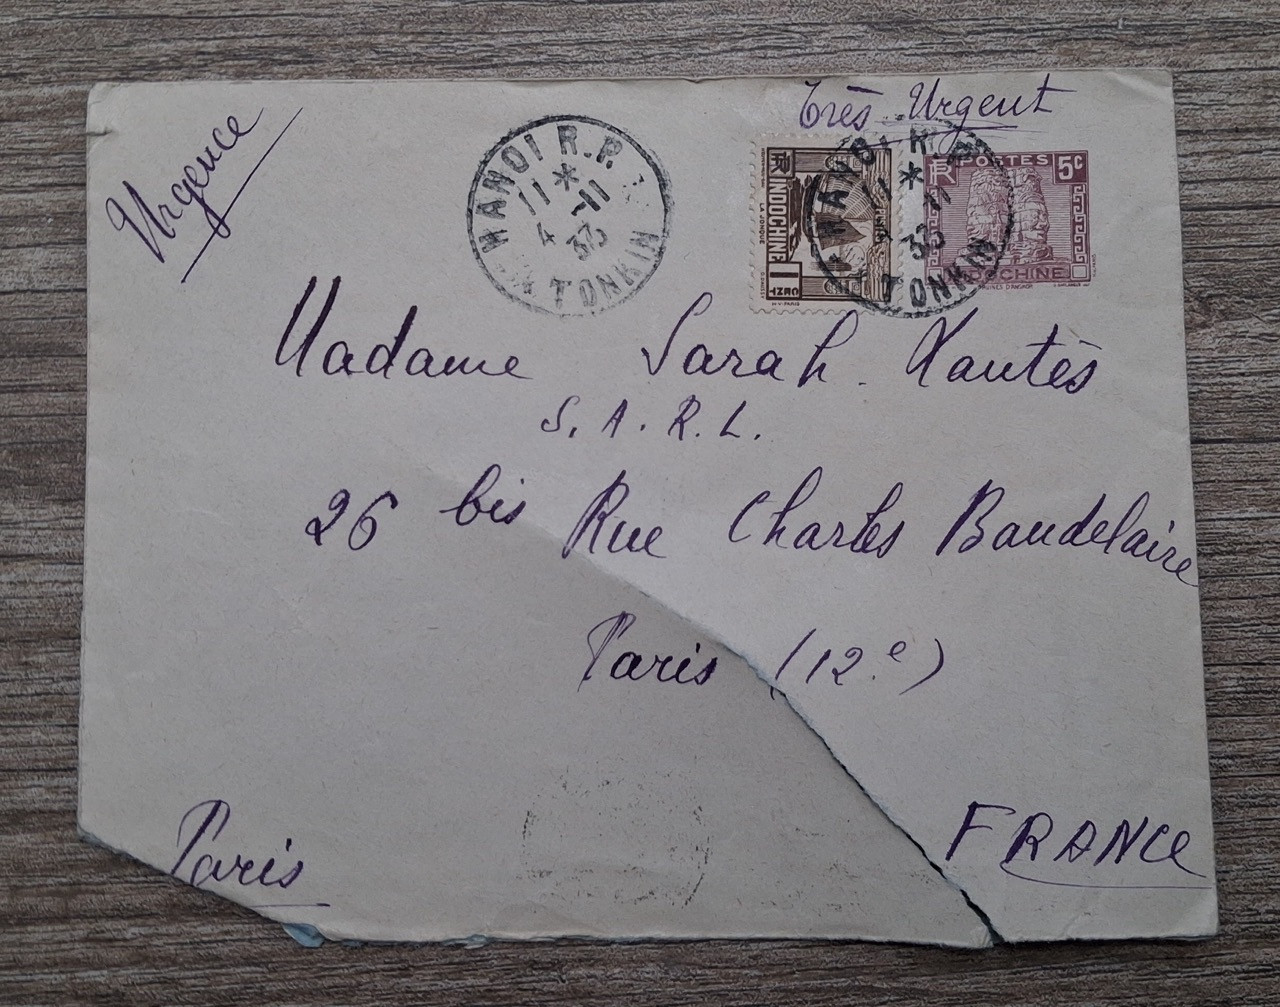 Très Urgent
Urgence
HANOI R.P.
11 * 11
4 33
TONKIN
RF INDOCHINE 1 CENT
POSTES
LA JONQUE
HANOI R.P.
11 * 11
33
TONKIN
RF POSTES 5c
INDOCHINE
RUINES D'ANGKOR
Madame Sarah Xantès
S.A.R.L.
26 bis Rue Charles Baudelaire
Paris (12.e)
Paris
FRANCE